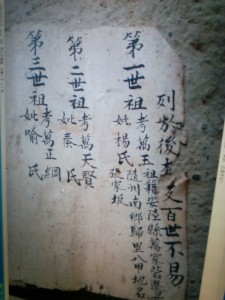 列於後㐀文百世不易
第一世祖考萬玉祖籍安陸縣萬家砦遷
妣楊氏隨州南鄉歸里八甲地名
張家坂
第二世祖考萬天賢
妣秦氏
第三世祖考萬正綱
妣喻氏